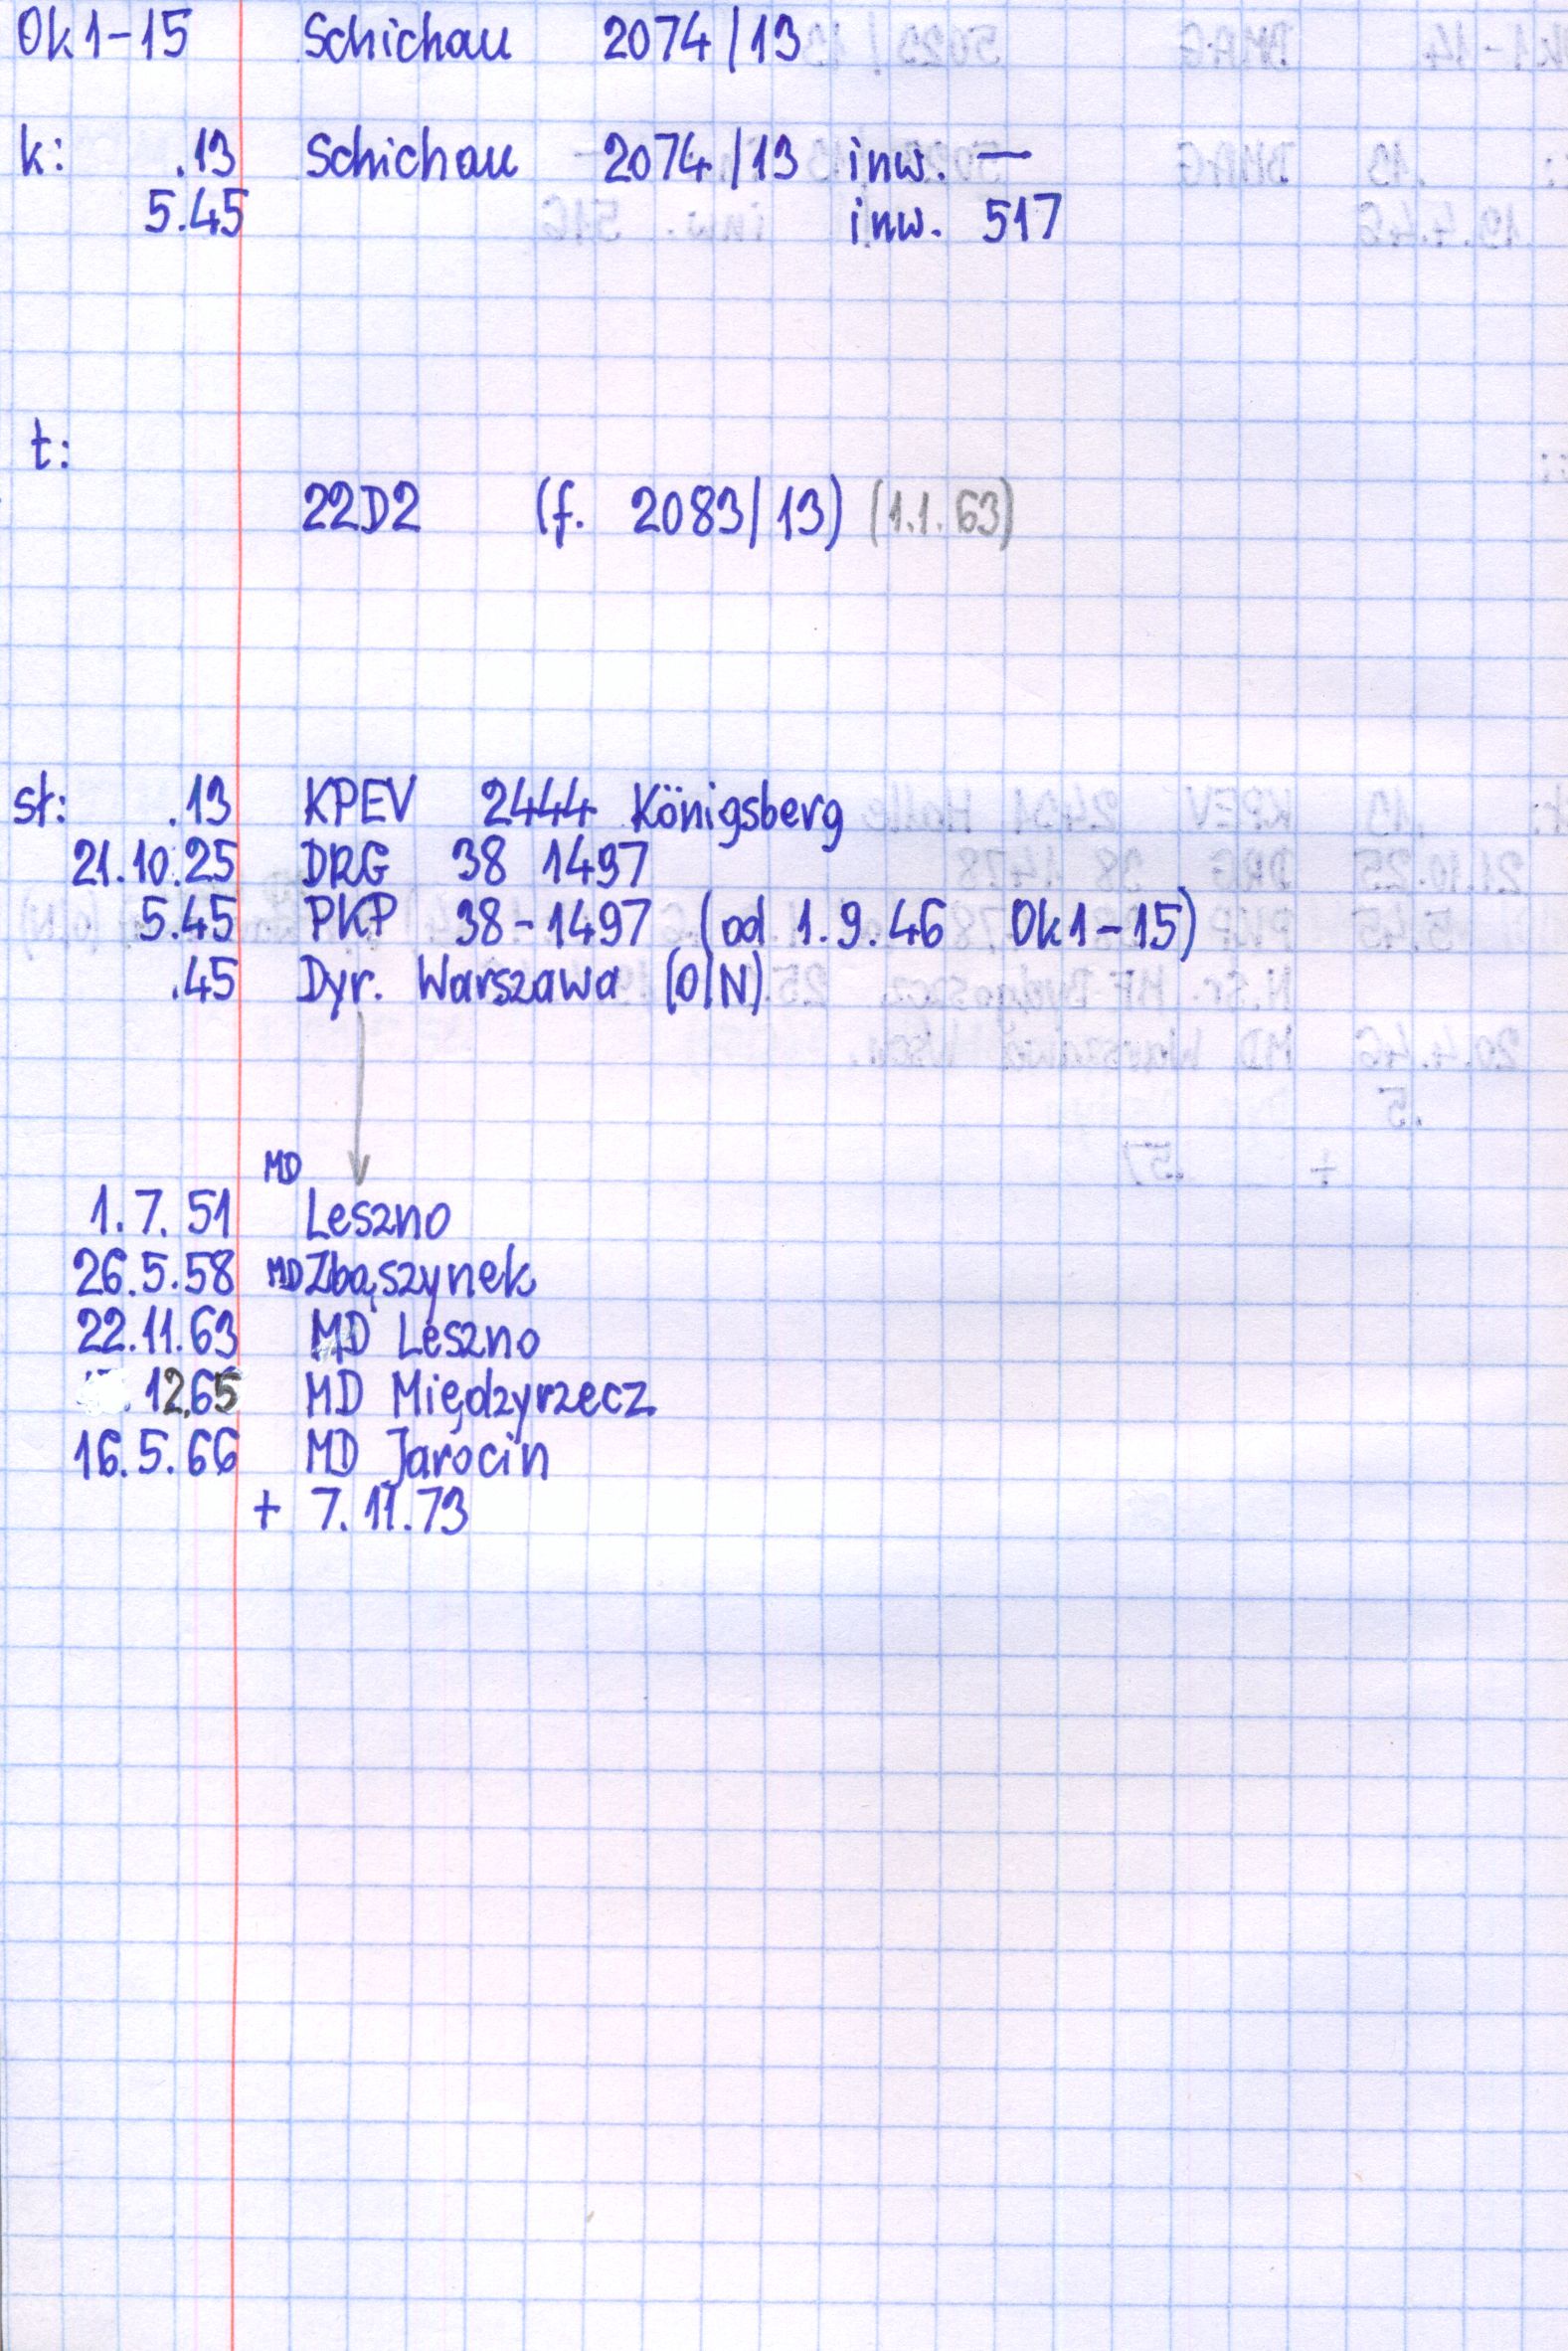 Ok1-15 Schichau 2074/13
k: .13 Schichau 2074/13 inw. —
5.45 inw. 517
t:
22D2 (f. 2083/13) (1.1.63)
st: .13 KPEV 2444 Königsberg
21.10.25 DRG 38 1497
5.45 PKP 38-1497 (od 1.9.46 Ok1-15)
.45 Dyr. Warszawa (O/N)
MD
1.7.51 Leszno
26.5.58 MD Zbąszynek
22.11.63 MD Leszno
12.65 MD Międzyrzecz
16.5.66 MD Jarocin
+ 7.11.73